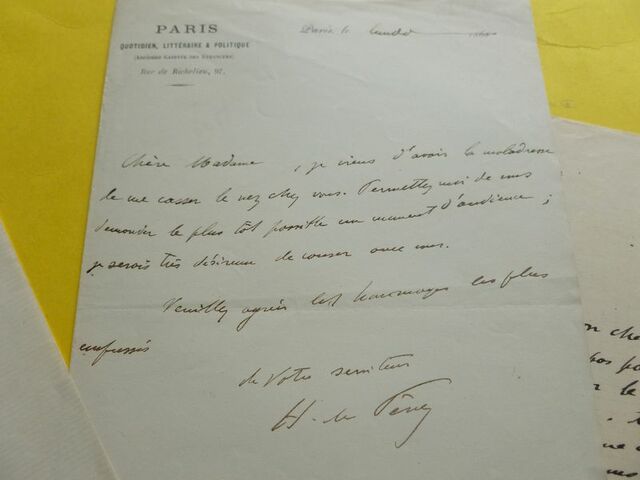 PARIS
QUOTIDIEN, LITTÉRAIRE & POLITIQUE
(ANCIENNE GAZETTE DES ÉTRANGERS)
Rue de Richelieu, 92.
Paris, le lundi 186
Chère Madame, je viens d'avoir la maladresse
de me casser le nez chez vous. Permettez moi de vous
demander le plus tôt possible un moment d'audience ;
je serois très désireux de causer avec vous.
Veuillez agréer les hommages les plus
empressés
de Votre serviteur
H. de Pène